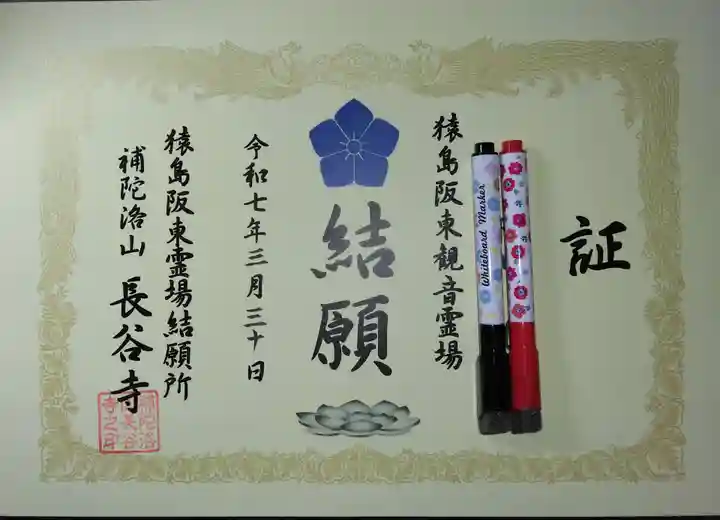 証
Whiteboard Marker
猿島阪東観音霊場
結願
令和七年三月三十日
猿島阪東霊場結願所
補陀洛山 長谷寺